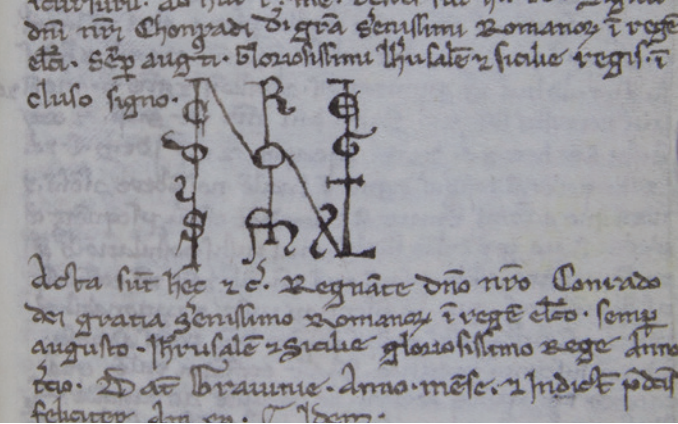 dnı nr̄ı Chonradi di gr̄a Serenissimi Romanoꝝ ī regē
elc̄i. Sēp augti. Gloriosissimi Ihrusalē ⁊ sicilie regis. ī
cluso signo.
Acta sūt hec ⁊ c̄. Regnāte dn̄o nr̄o Conrado
dei gratia Serenissimo Romanoꝝ ī regē elc̄o. semꝑ
augusto. Ihrusalē ⁊ Sicilie gloriosissimo Rege Anno
t̄cio. Dat̄ Anno. mēse. ⁊ Indict̄ p̄dc̄is
feliciter Am en. Idem.